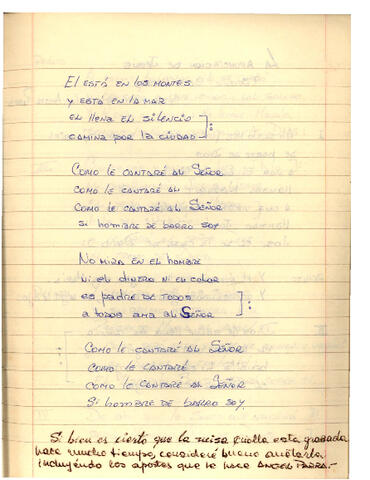 EL ESTÁ EN LOS MONTES
Y ESTÁ EN LA MAR
EL LLENA EL SILENCIO
CAMINA POR LA CIUDAD
COMO LE CANTARÉ AL SEÑOR
COMO LE CANTARÉ AL
COMO LE CANTARÉ AL SEÑOR
SI HOMBRE DE BARRO SOY
NO MIRA EN EL HOMBRE
NI EL DINERO NI EL COLOR
ES PADRE DE TODOS
A TODOS AMA EL SEÑOR
COMO LE CANTARÉ AL SEÑOR
COMO LE CANTARÉ
COMO LE CANTARÉ AL SEÑOR
SI HOMBRE DE BARRO SOY.
Si bien es cierto que la misa criolla esta grabada
hace mucho tiempo, consideré bueno anotarla
incluyendo los aportes que le hace ANGEL PARRA.-